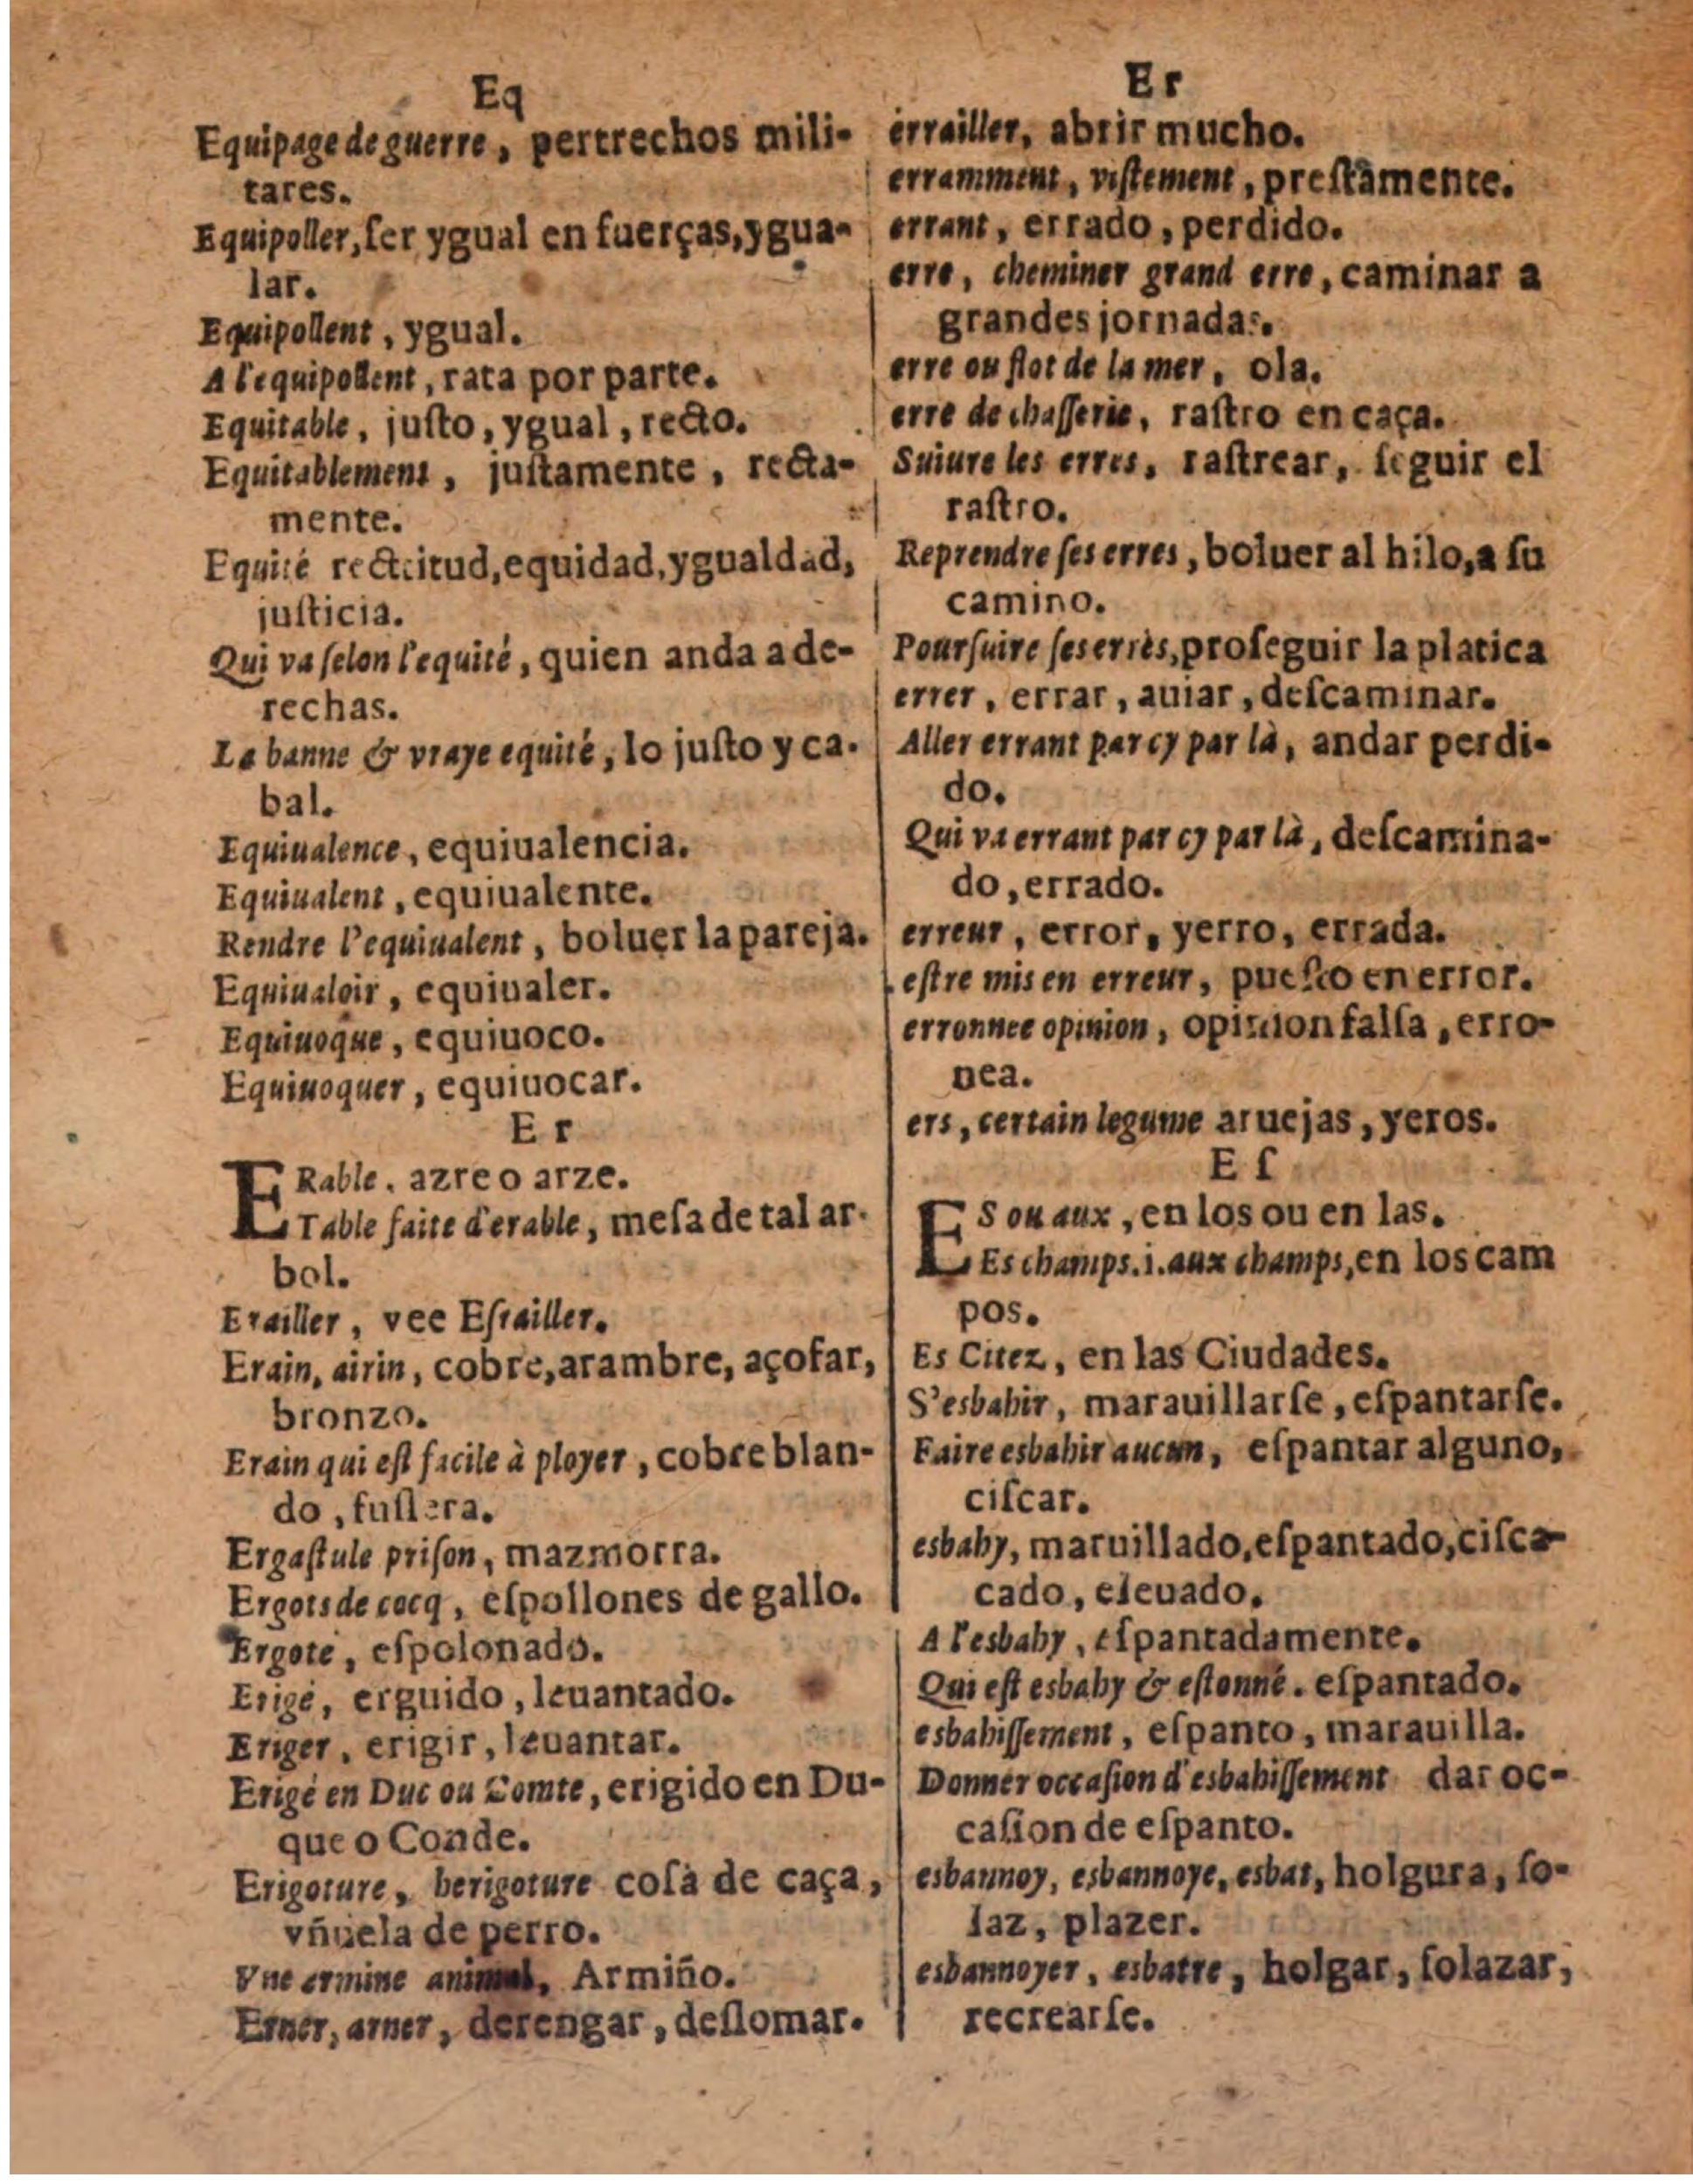 Eq
Equipage de guerre, pertrechos mili-
tares.
Equipoller, ſer ygual en fuerças, ygua-
lar.
Equipollent, ygual.
A l'equipollent, rata por parte.
Equitable, juſto, ygual, recto.
Equitablement, juſtamente, recta-
mente.
Equité rectitud, equidad, ygualdad,
juſticia.
Qui va ſelon l'equité, quien anda a de-
rechas.
La banne & vraye equité, lo juſto y ca-
bal.
Equiualence, equiualencia.
Equiualent, equiualente.
Rendre l'equiualent, boluer la pareja.
Equiualoir, equiualer.
Equiuoque, equiuoco.
Equiuoquer, equiuocar.
Er
ERable. azre o arze.
Table faite d'erable, meſa de tal ar-
bol.
Erailler, vee Eſrailler.
Erain, airin, cobre, arambre, açofar,
bronzo.
Erain qui eſt facile à ployer, cobre blan-
do, fuſlera.
Ergaſtule priſon, mazmorra.
Ergots de cocq, eſpollones de gallo.
Ergoté, eſpolonado.
Erigé, erguido, leuantado.
Eriger, erigir, leuantar.
Erigé en Duc ou Comte, erigido en Du-
que o Conde.
Erigoture, herigoture coſa de caça,
vñuela de perro.
Vne ermine animal, Armiño.
Erner, arner, derengar, deſlomar.
Er
érrailler, abrir mucho.
erramment, viſtement, preſtamente.
errant, errado, perdido.
erre, cheminer grand erre, caminar a
grandes jornadas.
erre ou flot de la mer, ola.
erre de chaſſerie, raſtro en caça.
Suiure les erres, raſtrear, ſeguir el
raſtro.
Reprendre ſes erres, boluer al hilo, a ſu
camino.
Pourſuire ſes errès, proſeguir la platica
errer, errar, auiar, deſcaminar.
Aller errant par cy par là, andar perdi-
do.
Qui va errant par cy par là, deſcamina-
do, errado.
erreur, error, yerro, errada.
eſtre mis en erreur, pueſto en error.
erronnee opinion, opinion falſa, erro-
nea.
ers, certain legume aruejas, yeros.
Eſ
ES ou aux, en los ou en las.
Es champs.i.aux champs, en los cam
pos.
Es Citez, en las Ciudades.
S'esbahir, marauillarſe, eſpantarſe.
Faire esbahir aucun, eſpantar alguno,
ciſcar.
esbahy, maruillado, eſpantado, ciſca-
cado, eleuado.
A l'esbahy, eſpantadamente.
Qui eſt esbahy & eſtonné. eſpantado.
esbahiſſement, eſpanto, marauilla.
Donner occaſion d'esbahiſſement dar oc-
caſion de eſpanto.
esbannoy, esbannoye, esbat, holgura, ſo-
laz, plazer.
esbannoyer, esbatre, holgar, ſolazar,
recrearſe.